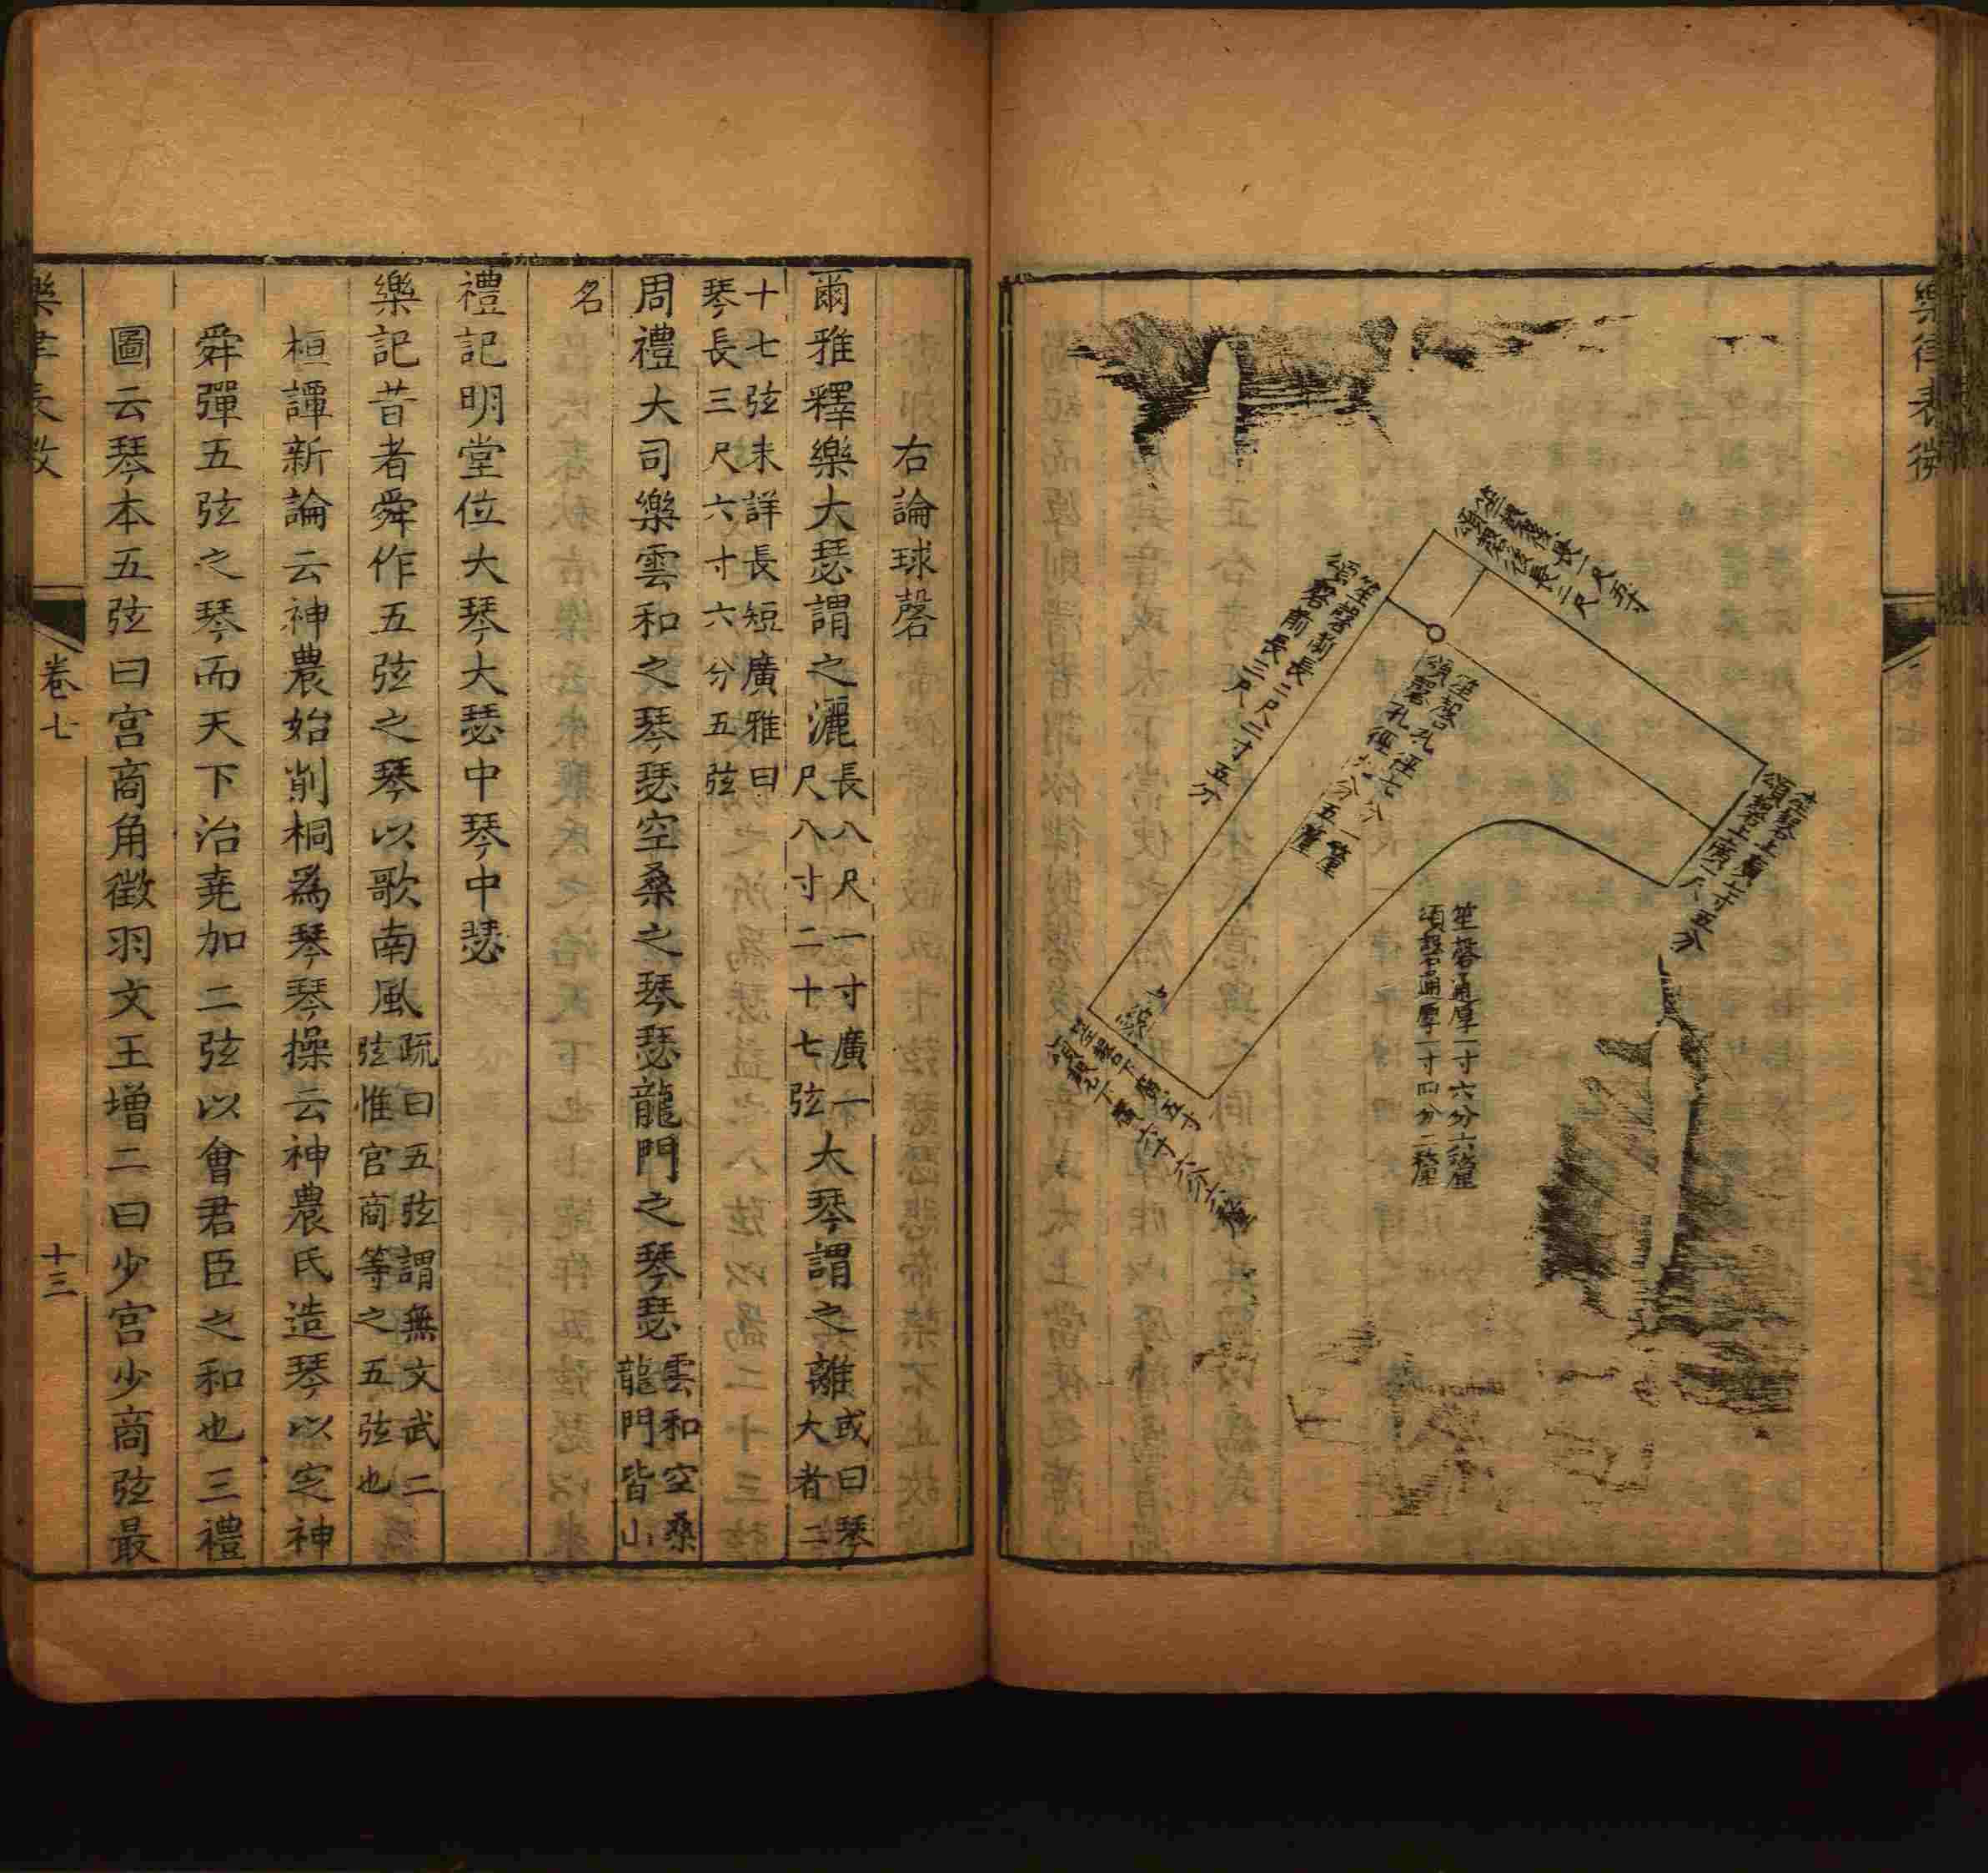 樂律表微
笙磬後長一尺五寸
頌磬後長二尺
笙磬前長二尺二寸五分
頌磬前長三尺
笙磬上廣七寸五分
頌磬上廣一尺
笙磬通厚一寸六分六釐
頌磬通厚一寸四分二釐
右論球磬
爾雅釋樂大瑟謂之灑長八尺一寸廣一尺八寸二十七弦大琴謂之離或曰琴大者二
十七弦未詳長短廣雅曰琴長三尺六寸六分五弦
周禮大司樂雲和之琴瑟空桑之琴瑟龍門之琴瑟雲和空桑龍門皆山
名
禮記明堂位大琴大瑟中琴中瑟
樂記昔者舜作五弦之琴以歌南風疏曰五弦謂無文武二弦惟宮商等之五弦也
桓譚新論云神農始削桐爲琴琴操云神農氏造琴以定神
舜彈五弦之琴而天下治堯加二弦以會君臣之和也三禮
圖云琴本五弦曰宮商角徵羽文王增二曰少宮少商弦最
卷七
十三